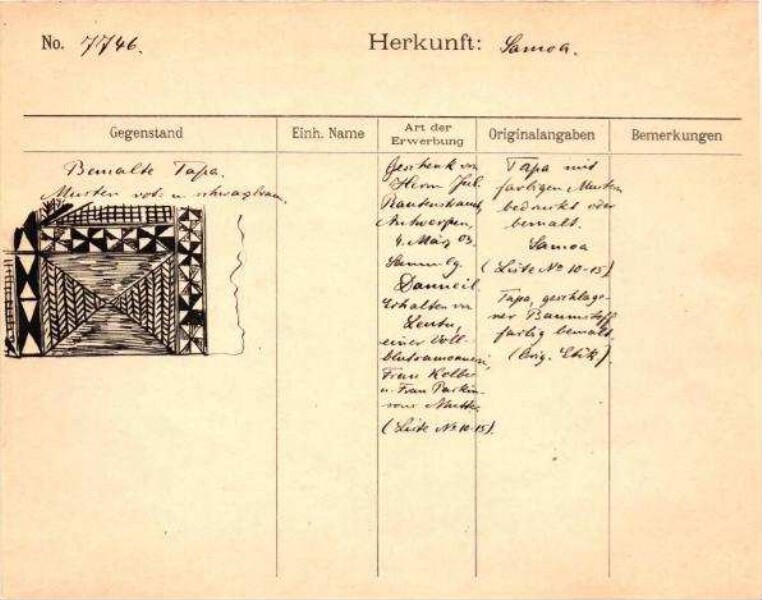 No. 7746.
Herkunft: Samoa.
Gegenstand
Einh. Name
Art der Erwerbung
Originalangaben
Bemerkungen
Bemalte Tapa.
Muster rot u. schwarzbraun.
Geschenk von
Herrn Jul.
Rautenstrauch,
Antwerpen,
4. März 03.
Sammlg.
Danneil.
Erhalten von
einer Voll-
blutsamoanerin,
Frau Kolbe
u. Frau Parkin-
sons Mutter.
(Liste No 10-15).
Tapa mit
farbigen Mustern
bedruckt oder
bemalt.
Samoa
(Liste No 10-15)
Tapa, geschlage-
ner Baumstoff
farbig bemalt.
(Orig. Etik).